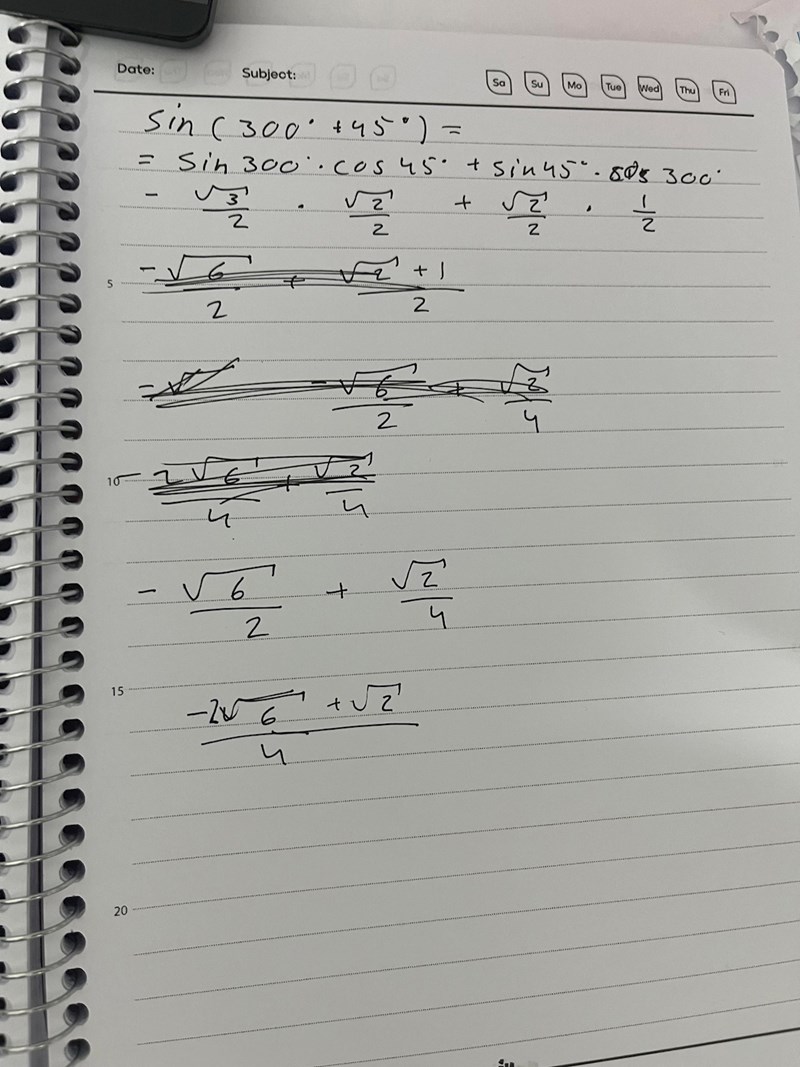 Date: Subject: Sa Su Mo Tue Wed Thu Fri
sin (300° + 45°) =
= sin 300° · cos 45° + sin 45° · cos 300°
- √3/2 · √2/2 + √2/2 · 1/2
5 -√6/2 + √2+1/2
= √ -√6/2 + √2/4
10 -2√6/4 + √2/4
- √6/2 + √2/4
15
-2√6 + √2/4
20